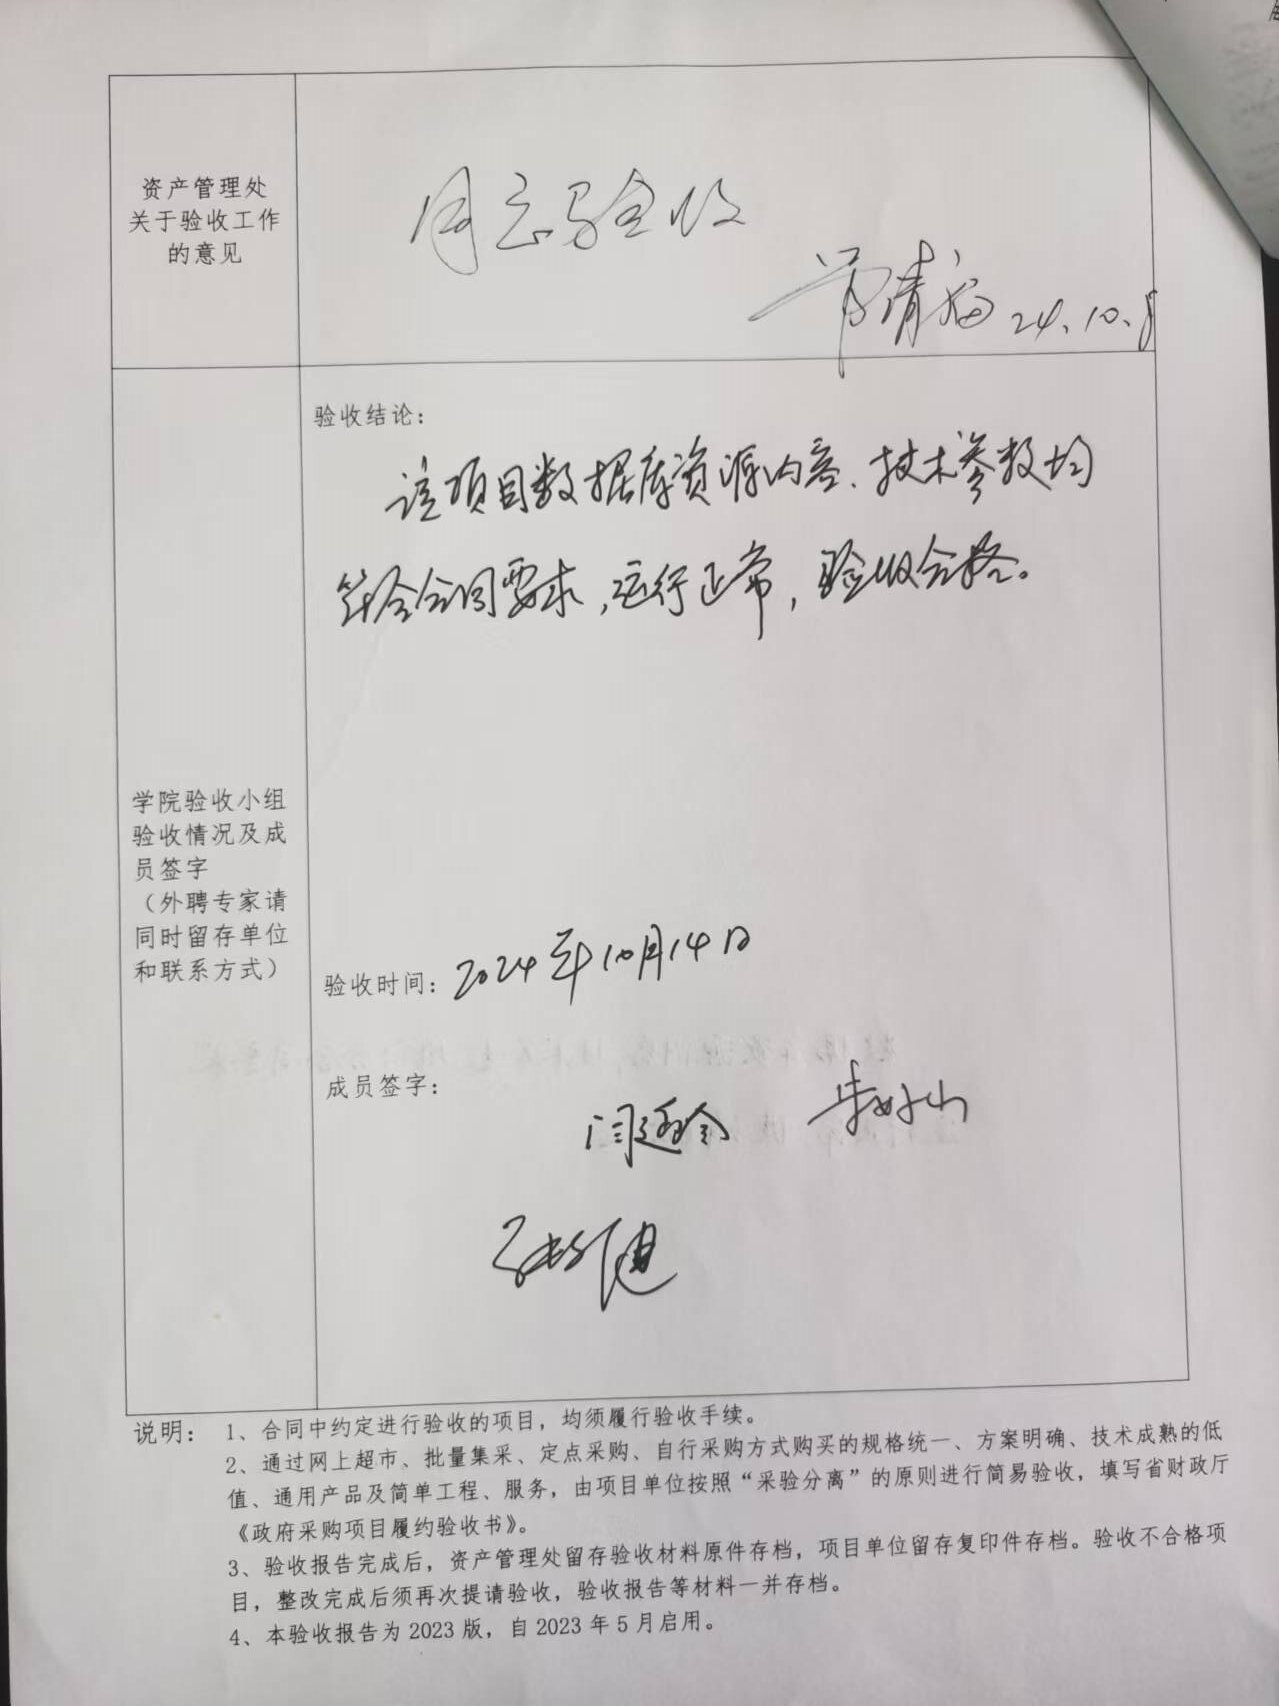 资产管理处
关于验收工作
的意见
同意验收
24.10.8
验收结论：
该项目数据库资源内容、技术参数均
符合合同要求，运行正常，验收合格。
学院验收小组
验收情况及成
员签字
（外聘专家请
同时留存单位
和联系方式）
验收时间：2024年10月14日
成员签字：
说明：1、合同中约定进行验收的项目，均须履行验收手续。
2、通过网上超市、批量集采、定点采购、自行采购方式购买的规格统一、方案明确、技术成熟的低
值、通用产品及简单工程、服务，由项目单位按照“采验分离”的原则进行简易验收，填写省财政厅
《政府采购项目履约验收书》。
3、验收报告完成后，资产管理处留存验收材料原件存档，项目单位留存复印件存档。验收不合格项
目，整改完成后须再次提请验收，验收报告等材料一并存档。
4、本验收报告为2023版，自2023年5月启用。